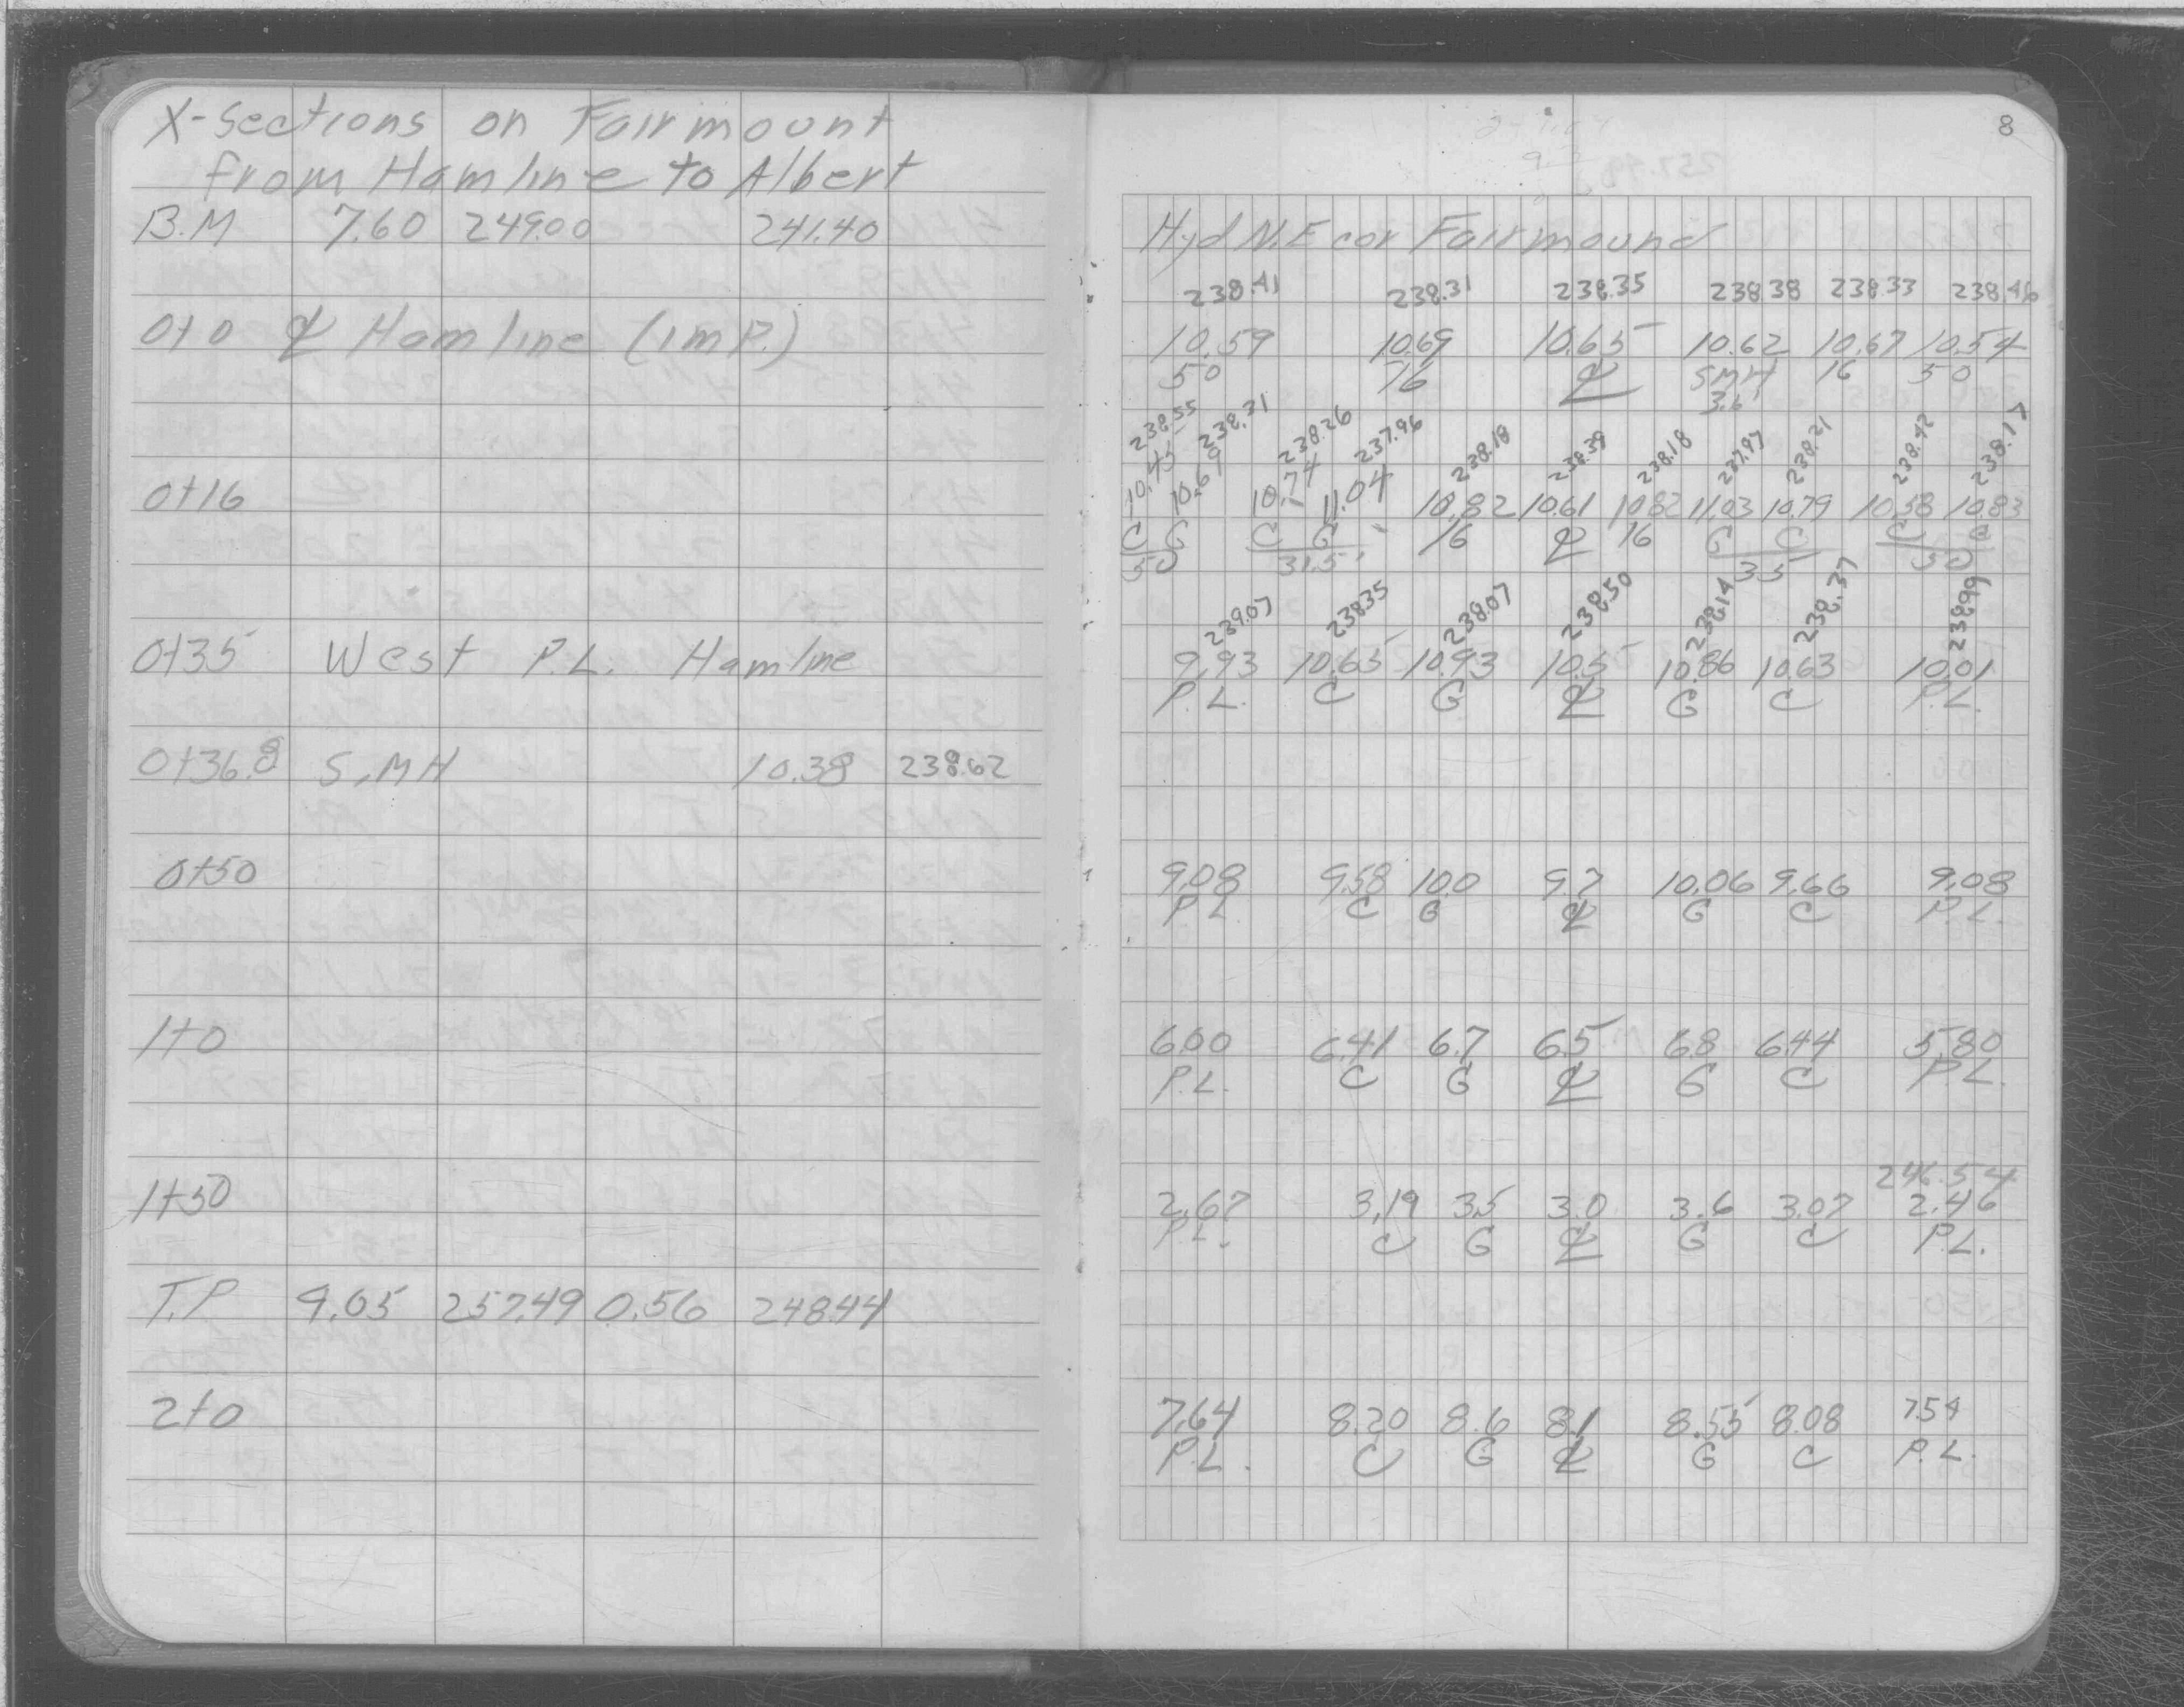 X-Sections on Fairmount
from Hamline to Albert
B.M 7.60 249.00 241.40
0+0 ℄ Hamline (imp.)
0+16
0+35 West P.L. Hamline
0+36.8 S.MH 10.38 238.62
0+50
1+0
1+50
T.P 9.05 257.49 0.56 248.44
2+0
8
Hyd N.E cor Fairmound
238.41 238.31 238.35 238.38 238.33 238.46
10.59 10.69 10.65 10.62 10.67 10.54
50 16 ℄ SMH 16 50
3.6
238.55 238.31 238.26 237.96 238.18 238.39 238.18 237.97 238.21 238.42 238.17
10.45 10.69 10.74 11.04 10.82 10.61 10.82 11.03 10.79 10.58 10.83
C G C G 16 ℄ 16 G C C G
50 31.5 35 50
239.07 238.35 238.07 238.50 238.14 238.37 238.99
9.93 10.65 10.93 10.5 10.86 10.63 10.01
P.L. C G ℄ G C P.L.
9.08 9.58 10.0 9.7 10.06 9.66 9.08
P.L. C G ℄ G C P.L.
6.00 6.41 6.7 6.5 6.8 6.44 5.80
P.L. C G ℄ G C P.L.
246.54
2.67 3.19 3.5 3.0 3.6 3.07 2.46
P.L. C G ℄ G C P.L.
7.64 8.20 8.6 8.1 8.55 8.08 7.54
P.L. C G ℄ G C P.L.